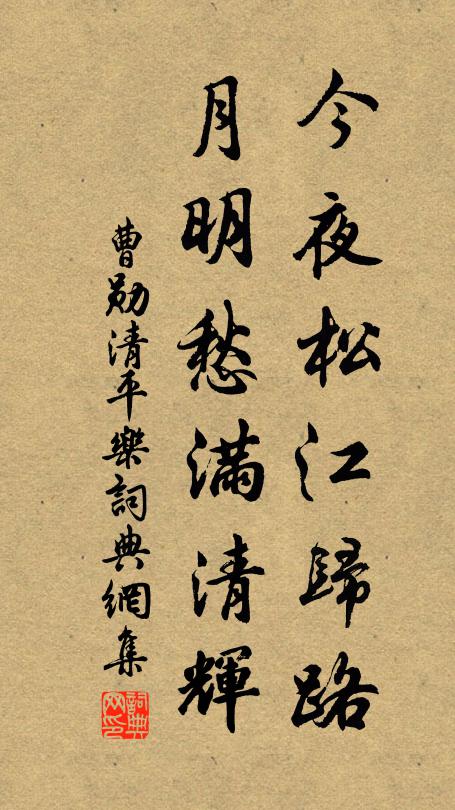 今夜松江歸路
月明愁滿清輝
曹勛清平樂詞典網集
詞典网印